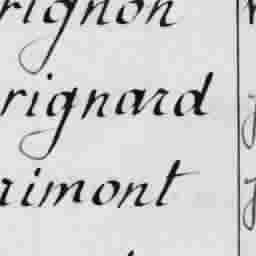 rignon
rignard
rimont